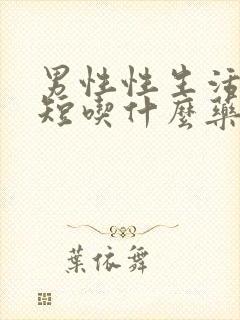 男性性生活
短喫什麼藥
葉依舞